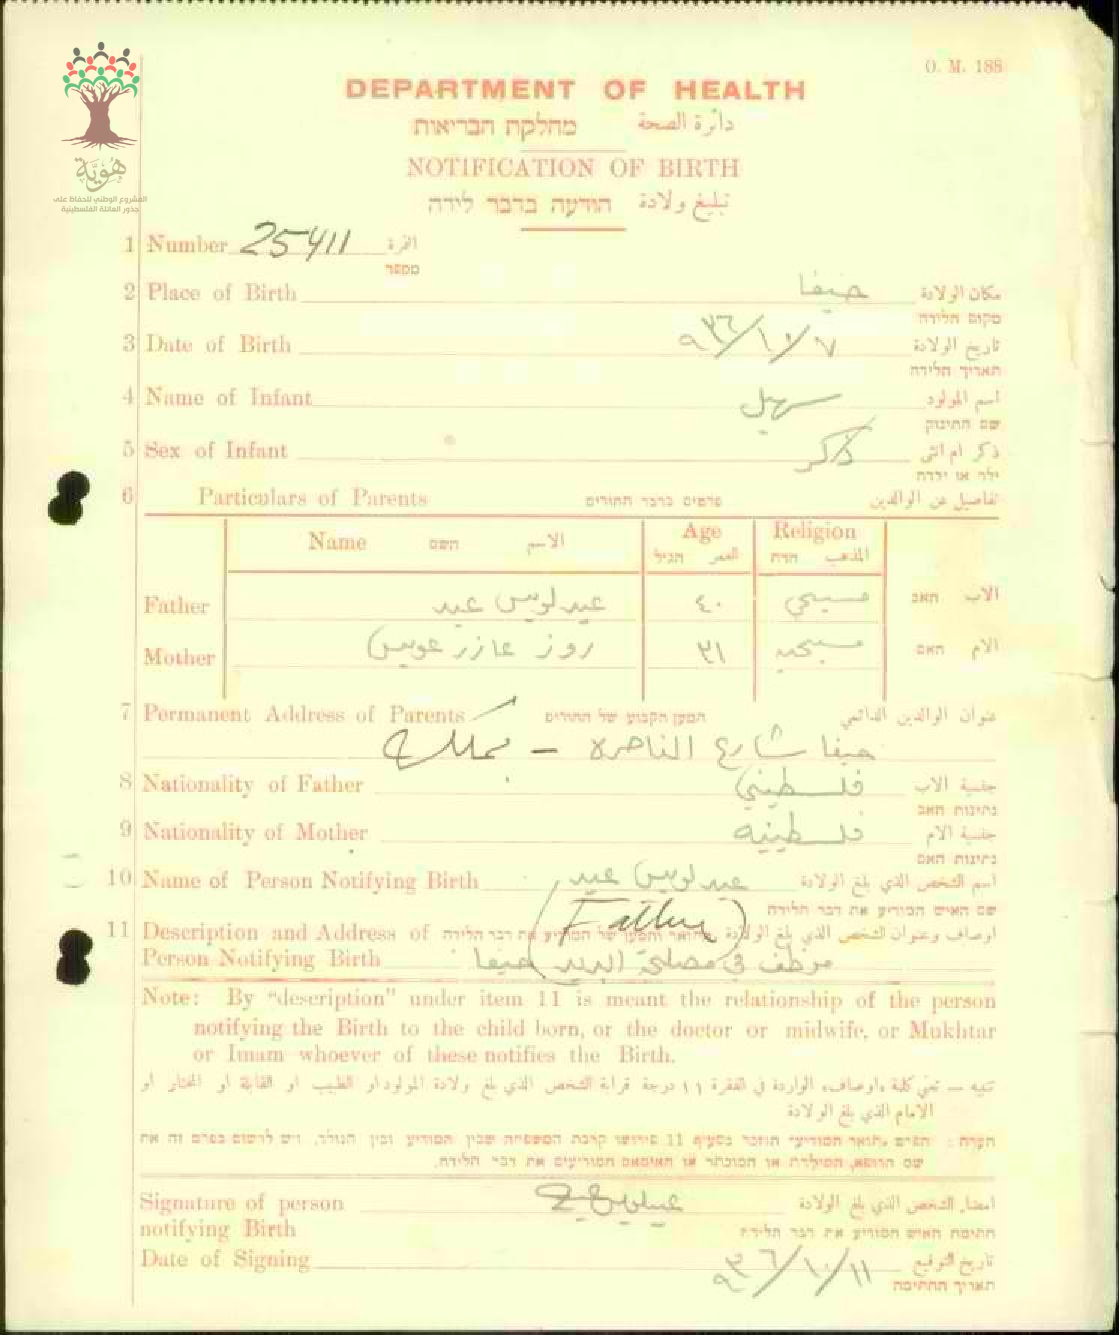 هُوِيَّة
المشروع الوطني للحفاظ على
جذور العائلة الفلسطينية
O. M. 188
DEPARTMENT OF HEALTH
מחלקת הבריאות دائرة الصحة
NOTIFICATION OF BIRTH
הודעה בדבר לידה تبليغ ولادة
1 Number 25411 النمرة
מספר
2 Place of Birth حيفا مكان الولادة
מקום הלידה
3 Date of Birth ٩٣٦/١٠/٧ تاريخ الولادة
תאריך הלידה
4 Name of Infant سهيل اسم المولود
שם התינוק
5 Sex of Infant ذكر ذكر ام انثى
ילד או ילדה
6 Particulars of Parents פרטים בדבר ההורים تفاصيل عن الوالدين
Name השם الاسم Age הגיל العمر Religion הדת المذهب
Father عيد لويس عيد ٤٠ مسيحي האב الاب
Mother روز عازر ٣١ مسيحيه האם الام
7 Permanent Address of Parents המען הקבוע של ההורים عنوان الوالدين الدائمي
حيفا شارع الناصره –
8 Nationality of Father فلسطيني جنسية الاب
נתינות האב
9 Nationality of Mother فلسطينيه جنسية الام
נתינות האם
10 Name of Person Notifying Birth عيد لويس عيد اسم الشخص الذي بلغ الولادة
שם האיש המודיע את דבר הלידה
(Father)
11 Description and Address of תואר ומען של המודיע את דבר הלידה اوصاف وعنوان الشخص الذي بلغ الولادة
Person Notifying Birth موظف في مصلحة البريد حيفا
Note: By "description" under item 11 is meant the relationship of the person
notifying the Birth to the child born, or the doctor or midwife, or Mukhtar
or Imam whoever of these notifies the Birth.
تنبيه — تعني كلمة «اوصاف» الواردة في الفقرة ١١ درجة قرابة الشخص الذي بلغ ولادة المولود او الطبيب او القابلة او المختار او
الامام الذي بلغ الولادة
הערה: הפרט "תואר המודיע" הנזכר בסעיף 11 פירושו קרבת המשפחה שבין המודיע ובין הנולד. ויש לרשום בפרט זה את
שם הרופא, המילדת או המוכתר או האימאם המודיעים את דבר הלידה.
Signature of person امضاء الشخص الذي بلغ الولادة
notifying Birth חתימת האיש המודיע את דבר הלידה
Date of Signing ٩٣٦/١٠/١١ تاريخ التوقيع
תאריך החתימה